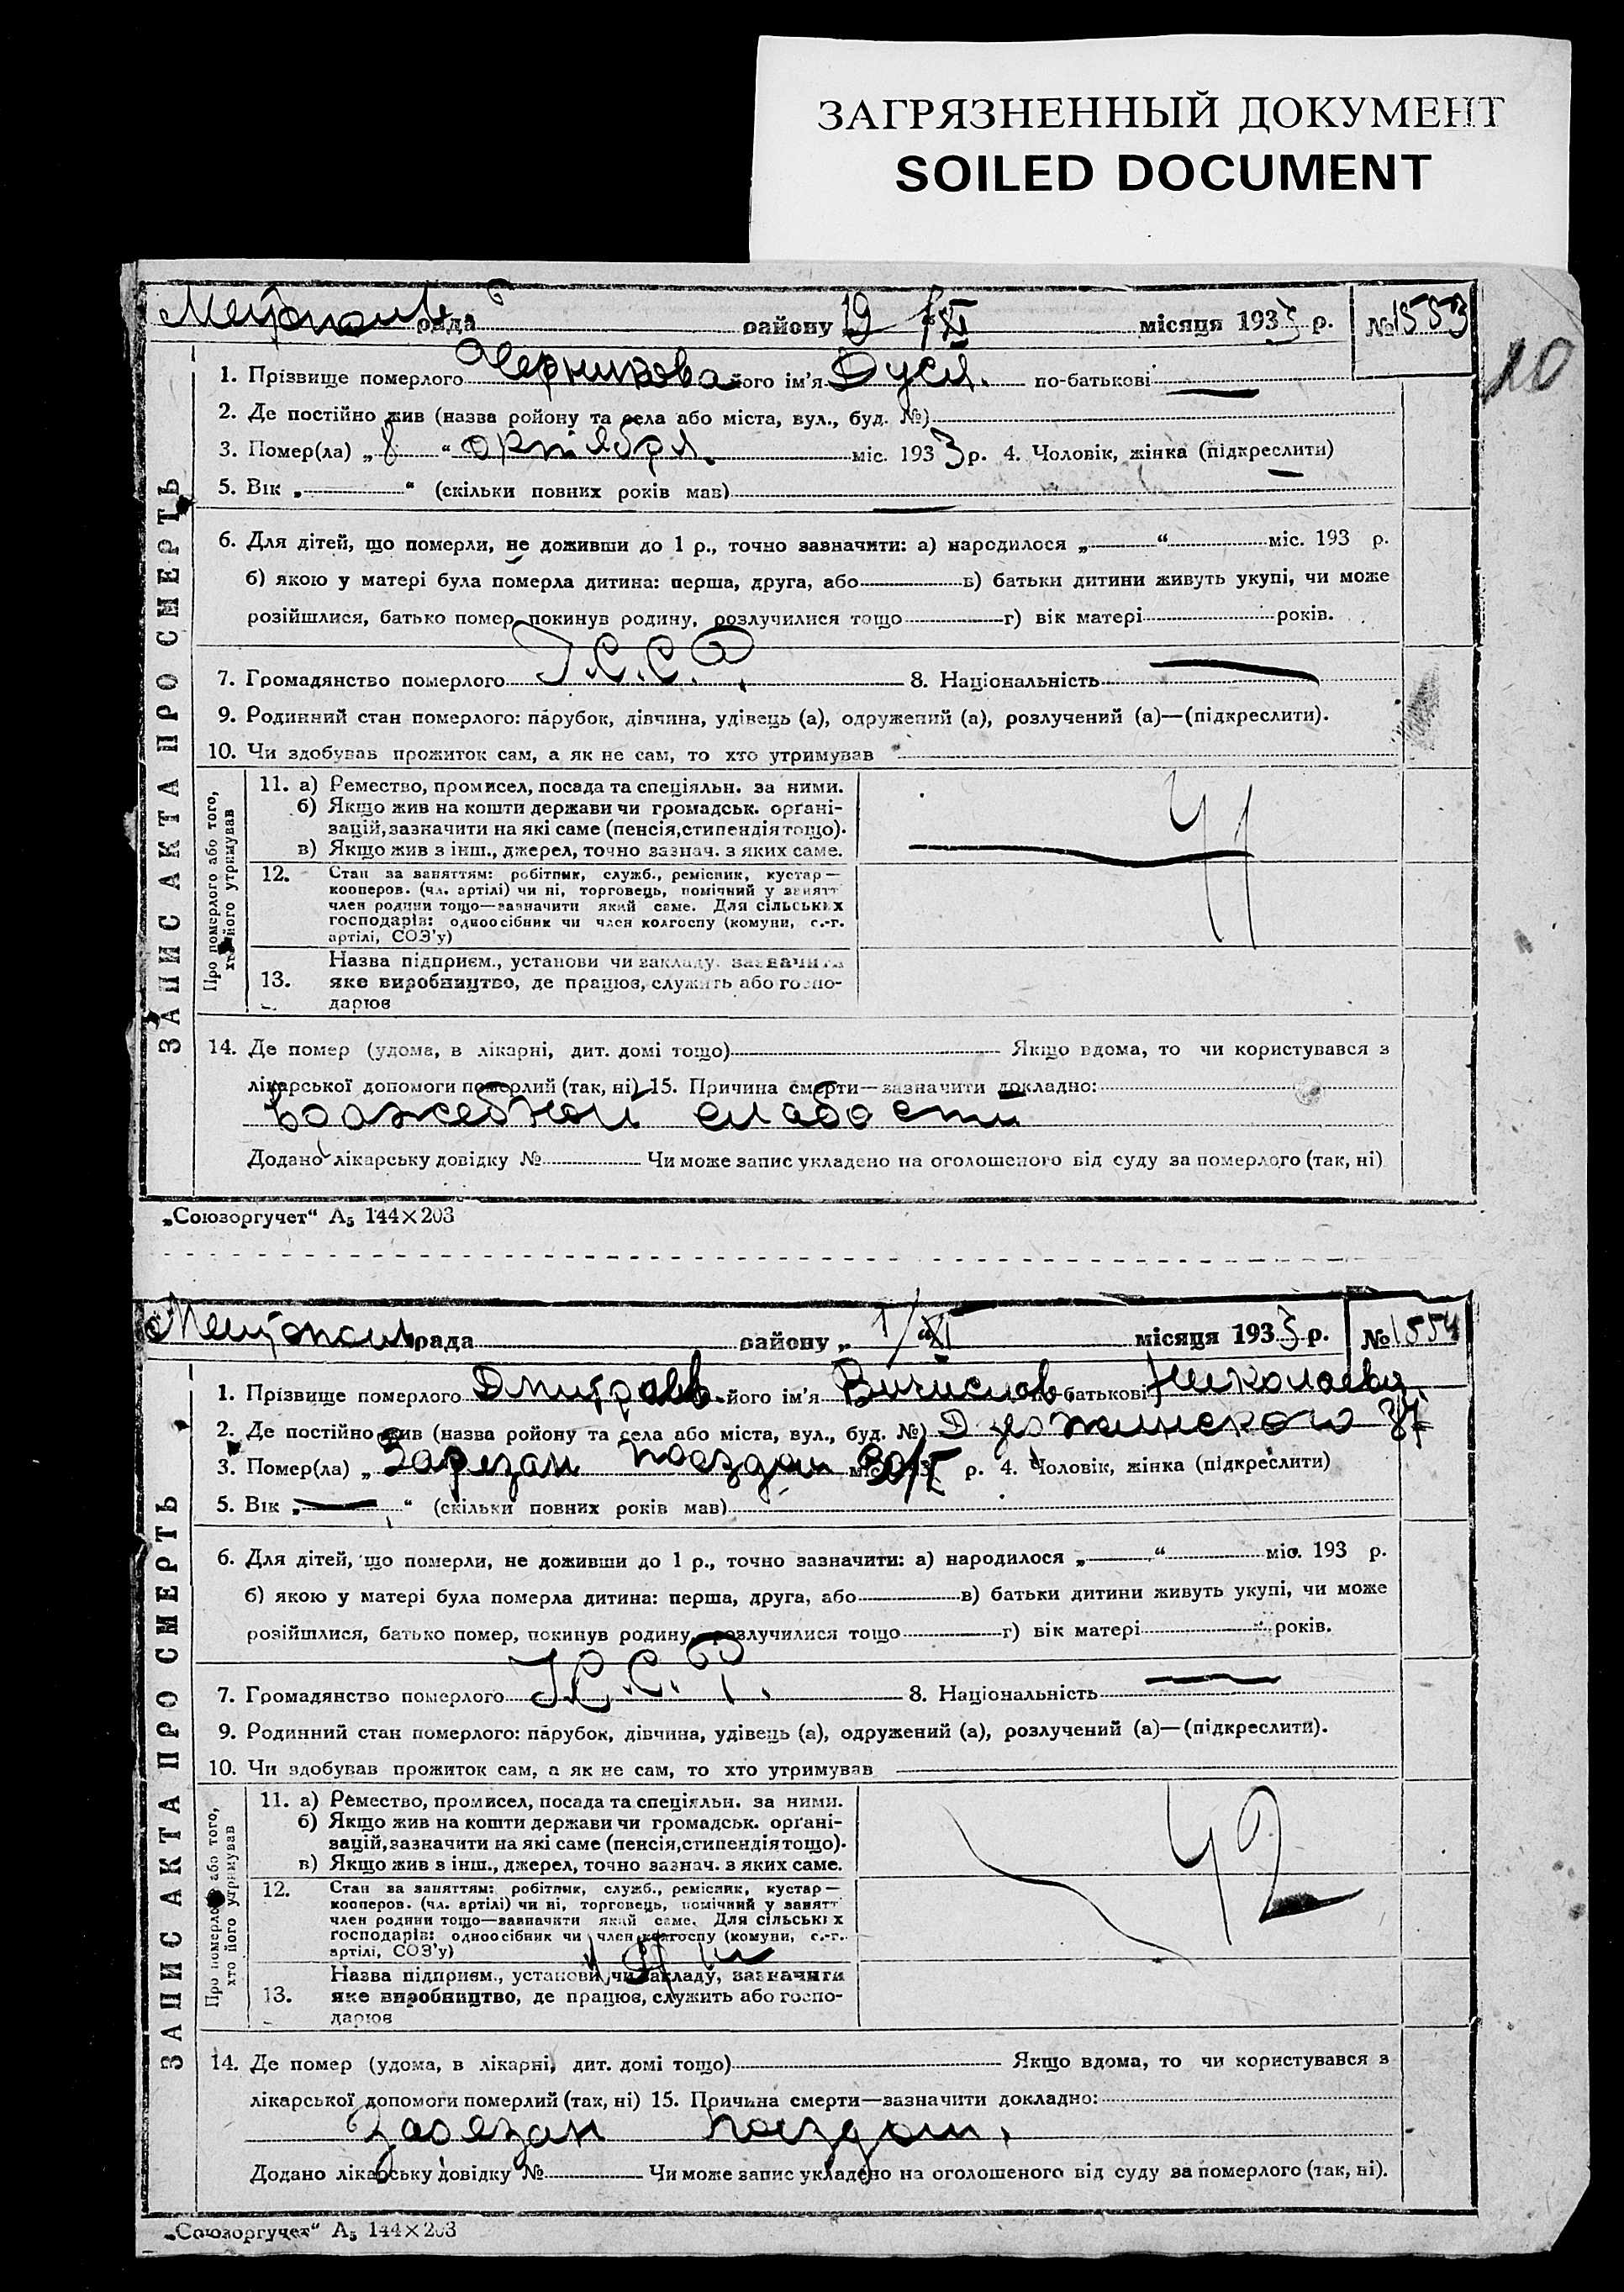 ЗАГРЯЗНЕННЫЙ ДОКУМЕНТ
SOILED DOCUMENT
рада району 19 XI місяця 1933 р. № 1553
20
ЗАПИС АКТА ПРО СМЕРТЬ
1. Прізвище померлого Черникова його ім'я Дуся. по-батькові —
2. Де постійно жив (назва ройону та села або міста, вул., буд. №)
3. Помер(ла) „ 8 “ октября. міс. 1933 р. 4. Чоловік, жінка (підкреслити)
5. Вік „ “ (скільки повних років мав)
6. Для дітей, що померли, не доживши до 1 р., точно зазначити: а) народилося „ “ міс. 193 р.
б) якою у матері була померла дитина: перша, друга, або в) батьки дитини живуть укупі, чи може
розійшлися, батько помер, покинув родину, розлучилися тощо г) вік матері років.
7. Громадянство померлого У.С.С.Р. 8. Національність —
9. Родинний стан померлого: парубок, дівчина, удівець (а), одружений (а), розлучений (а)—(підкреслити).
10. Чи здобував прожиток сам, а як не сам, то хто утримував
Про померлого або того, хто його утримував
11. а) Ремество, промисел, посада та спеціяльн. за ними.
б) Якщо жив на кошти держави чи громадськ. орґані-
зацій, зазначити на які саме (пенсія, стипендія тощо).
в) Якщо жив з інш., джерел, точно зазнач. з яких саме.
41
12. Стан за заняттям: робітник, служб., ремісник, кустар—
кооперов. (чл. артілі) чи ні, торговець, помічний у занятт
член родини тощо—зазначити який саме. Для сільських
господарів: одноосібник чи член колгоспу (комуни, с.-г.
артілі, СОЗ'у)
13. Назва підприєм., установи чи закладу, зазначити
яке виробництво, де працює, служить або госпо-
дарює
14. Де помер (удома, в лікарні, дит. домі тощо) Якщо вдома, то чи користувався з
лікарської допомоги померлий (так, ні) 15. Причина смерти—зазначити докладно:
слабости
Додано лікарську довідку № Чи може запис укладено на оголошеного від суду за померлого (так, ні)
„Союзоргучет“ А5 144×203
рада району „ 1/XI місяця 1933 р. № 1554
ЗАПИС АКТА ПРО СМЕРТЬ
1. Прізвище померлого його ім'я по-батькові
2. Де постійно жив (назва ройону та села або міста, вул., буд. №) 37
3. Помер(ла) „ Зарезан поездом міс. 30/X р. 4. Чоловік, жінка (підкреслити)
5. Вік „ — “ (скільки повних років мав)
6. Для дітей, що померли, не доживши до 1 р., точно зазначити: а) народилося „ “ міс. 193 р.
б) якою у матері була померла дитина: перша, друга, або в) батьки дитини живуть укупі, чи може
розійшлися, батько помер, покинув родину, розлучилися тощо г) вік матері років.
7. Громадянство померлого У.С.С.Р. 8. Національність —
9. Родинний стан померлого: парубок, дівчина, удівець (а), одружений (а), розлучений (а)—(підкреслити).
10. Чи здобував прожиток сам, а як не сам, то хто утримував
Про померлого або того, хто його утримував
11. а) Ремество, промисел, посада та спеціяльн. за ними.
б) Якщо жив на кошти держави чи громадськ. орґані-
зацій, зазначити на які саме (пенсія, стипендія тощо).
в) Якщо жив з інш., джерел, точно зазнач. з яких саме.
42
12. Стан за заняттям: робітник, служб., ремісник, кустар—
кооперов. (чл. артілі) чи ні, торговець, помічний у занятт
член родини тощо—зазначити який саме. Для сільських
господарів: одноосібник чи член колгоспу (комуни, с.-г.
артілі, СОЗ'у)
13. Назва підприєм., установи чи закладу, зазначити
яке виробництво, де працює, служить або госпо-
дарює
14. Де помер (удома, в лікарні, дит. домі тощо) Якщо вдома, то чи користувався з
лікарської допомоги померлий (так, ні) 15. Причина смерти—зазначити докладно:
зарезан поездом.
Додано лікарську довідку № Чи може запис укладено на оголошеного від суду за померлого (так, ні).
„Союзоргучет“ А5 144×203